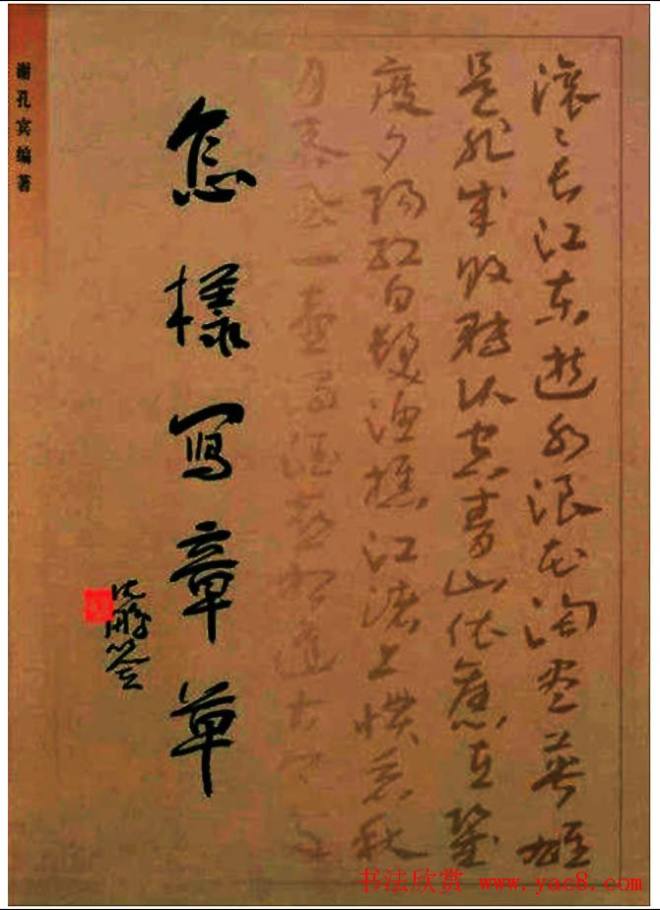 滚〻长江东逝水浪花淘尽英雄
是非成败转头空青山依旧在几
度夕阳红白发渔樵江渚上惯看秋
月春风一壶浊酒喜相逢古今多
怎樣写章草
沈鹏签
谢孔宾编著
书法欣赏 www.yac8.com